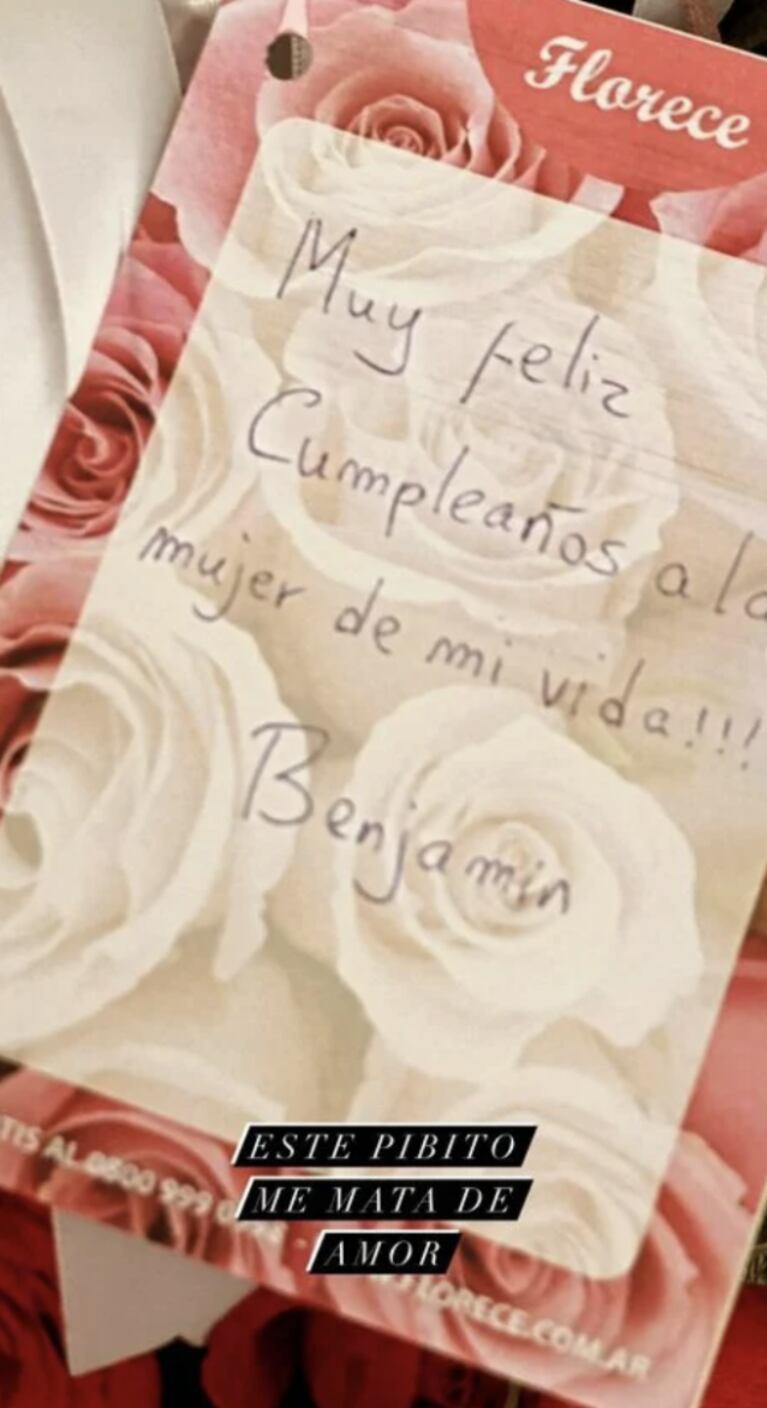 Florece
Muy feliz
Cumpleaños a la
mujer de mi vida!!!
Benjamin
ESTE PIBITO
ME MATA DE
AMOR
TIS AL 0800 999
FLORECE.COM.AR